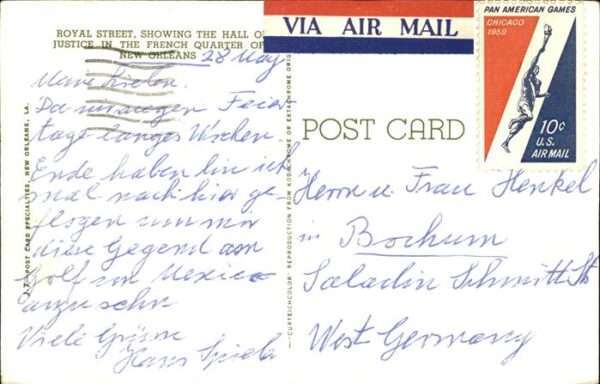 ROYAL STREET, SHOWING THE HALL OF
JUSTICE IN THE FRENCH QUARTER OF
NEW ORLEANS
28 May
Meine Lieben.
Da wir morgen Feier-
tage langes Wochen
Ende haben bin ich
mal nach hier ge-
flogen um mir
diese Gegend am
Golf von Mexico
anzusehn
Viele Grüsse
Hans
VIA AIR MAIL
PAN AMERICAN GAMES
CHICAGO
1959
10¢
U.S.
AIR MAIL
POST CARD
Herrn u. Frau Henkel
in Bochum
Saladin Schmitt St
West Germany
POST CARD SPECIALTIES, NEW ORLEANS, LA.
"CURTEICHCOLOR" REPRODUCTION FROM KODACHROME OR EKTACHROME ORIG